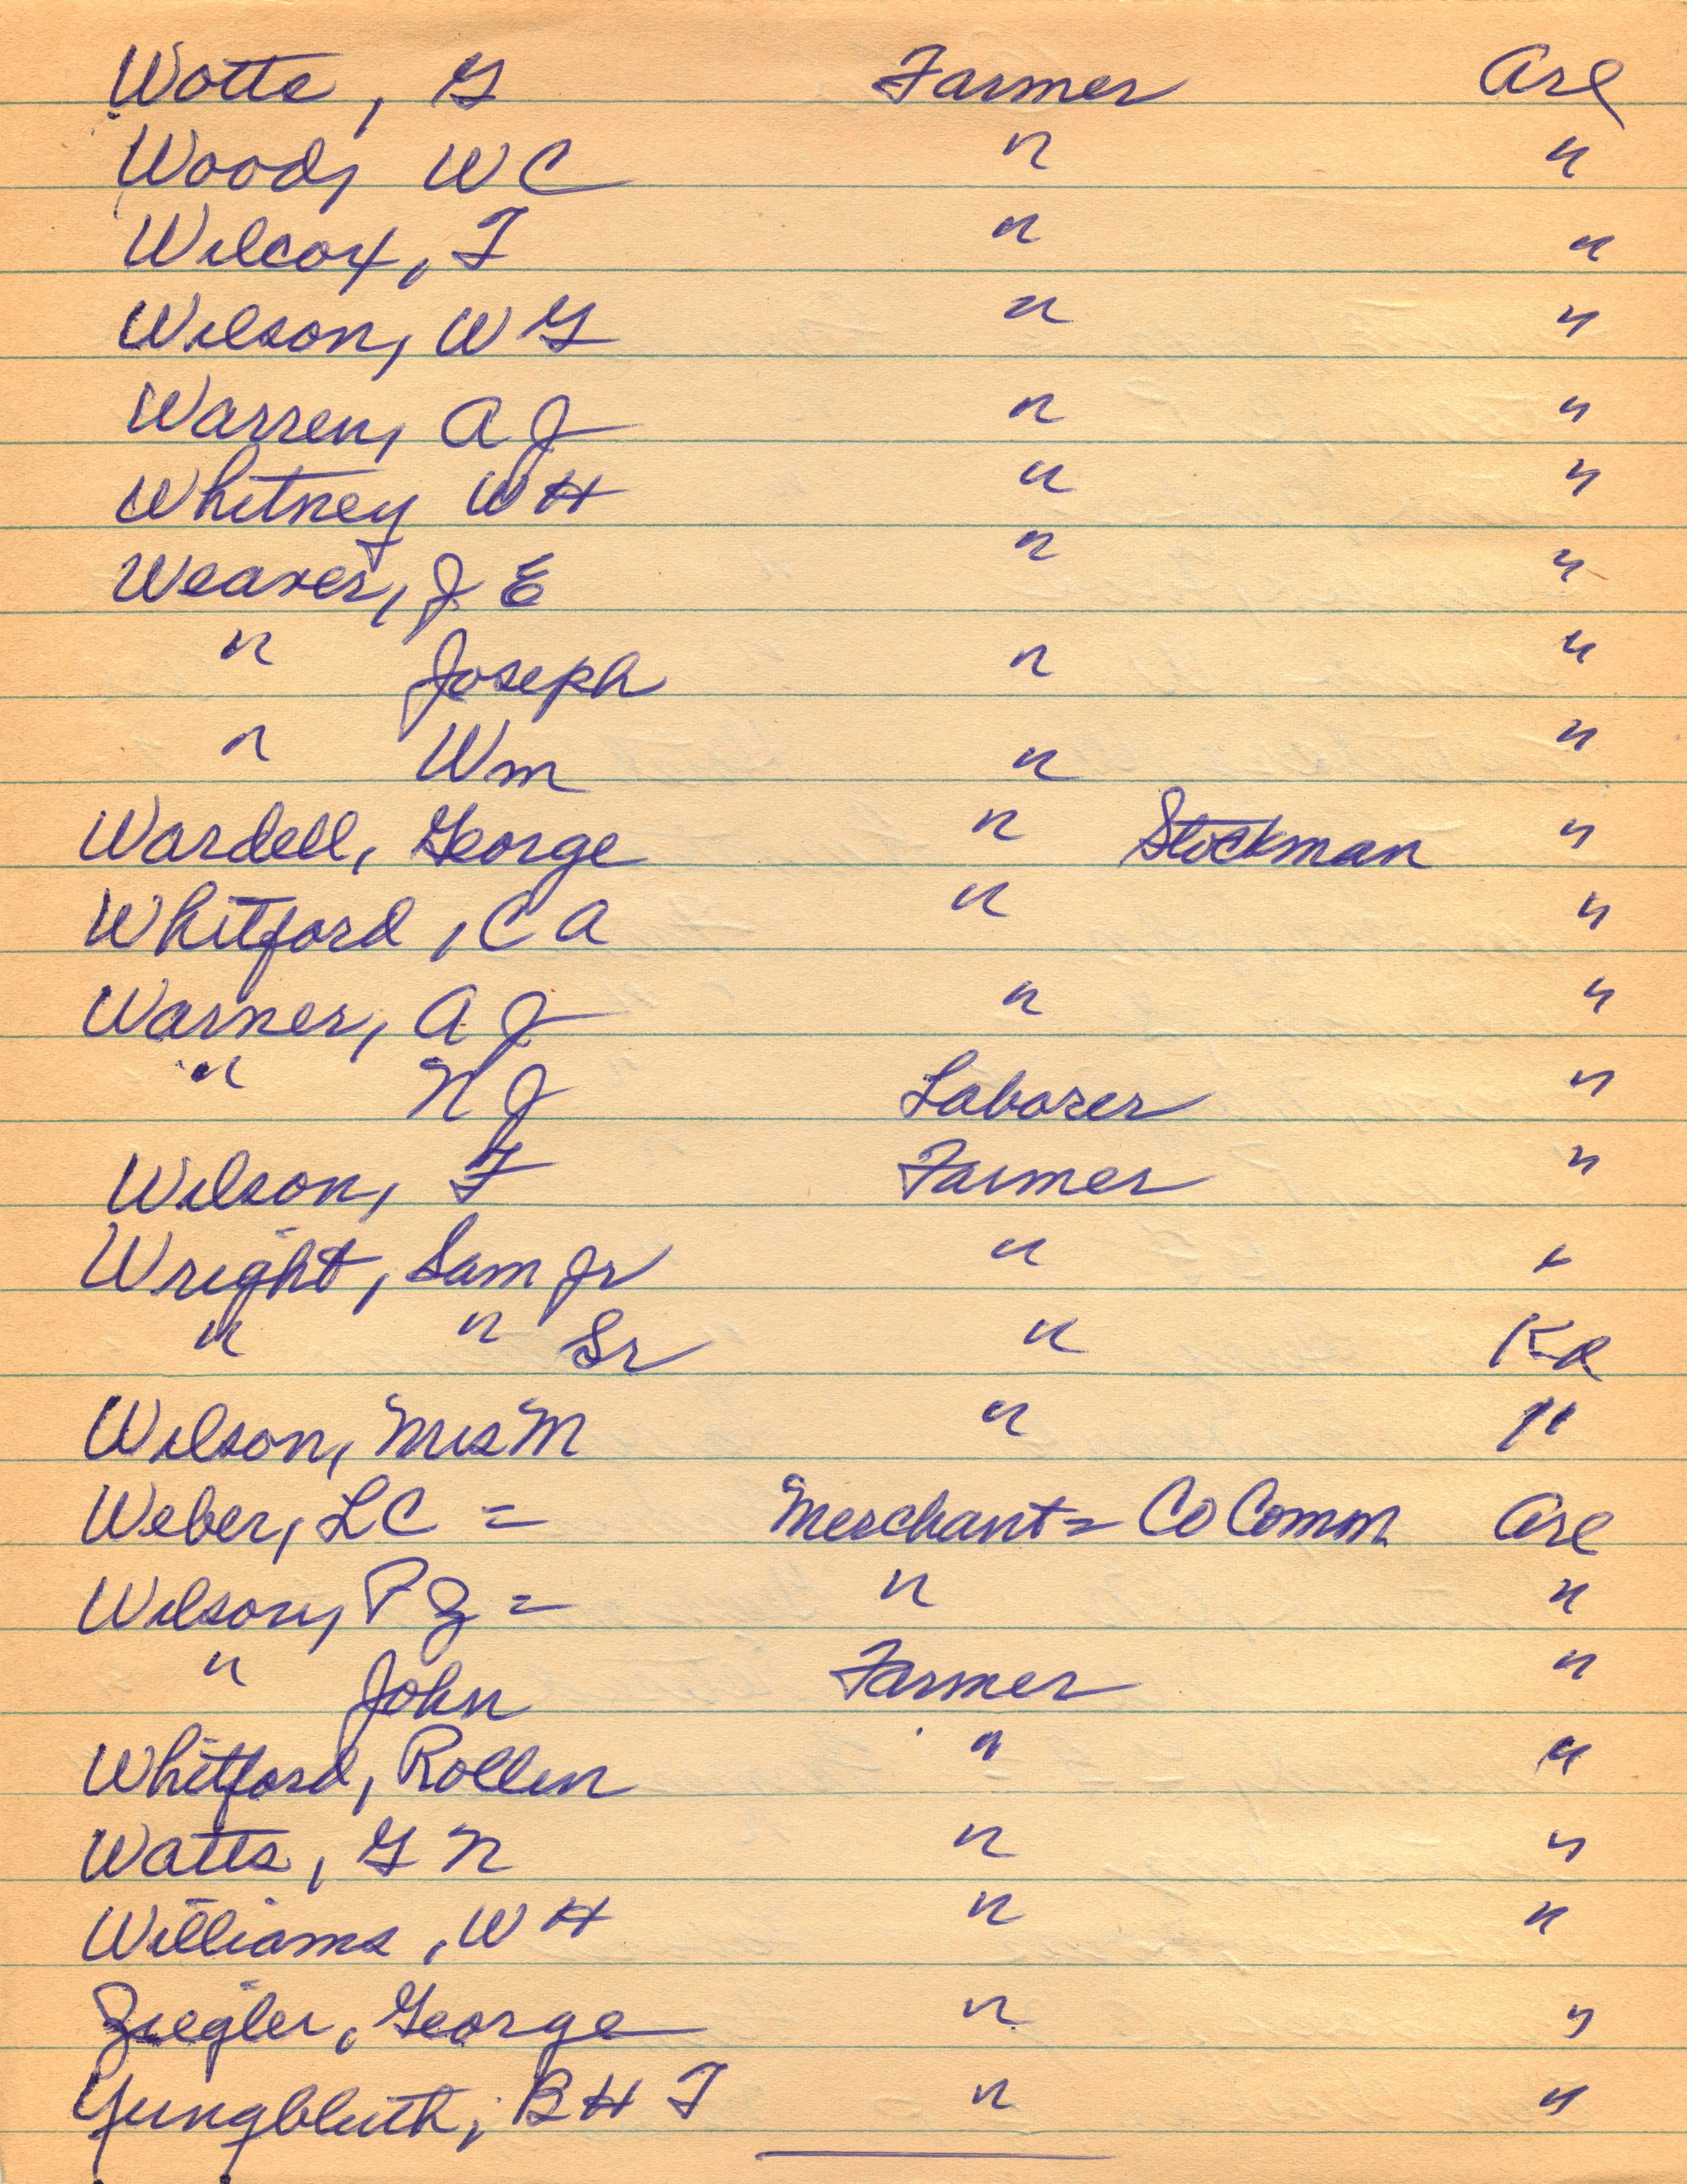 Wotte, G Farmer Arl
Wood, W C " "
Wilcox, F " "
Wilson, W G " "
Warren, A J " "
Whitney W H " "
Weaver, J E " "
" Joseph " "
" Wm " "
Wardell, George " Stockman "
Whitford, C A " "
Warner, A J " "
" N J Laborer "
Wilson, F Farmer "
Wright, Sam Jr " "
" " Sr " KR
Wilson, Mrs M " "
Weber, L C = Merchant = Co Comm. Arl
Wilson, P Z = " "
" John Farmer "
Whitford, Rollin " "
Watts, G N " "
Williams, W H " "
Ziegler, George " "
Yungbluth, B H F " "